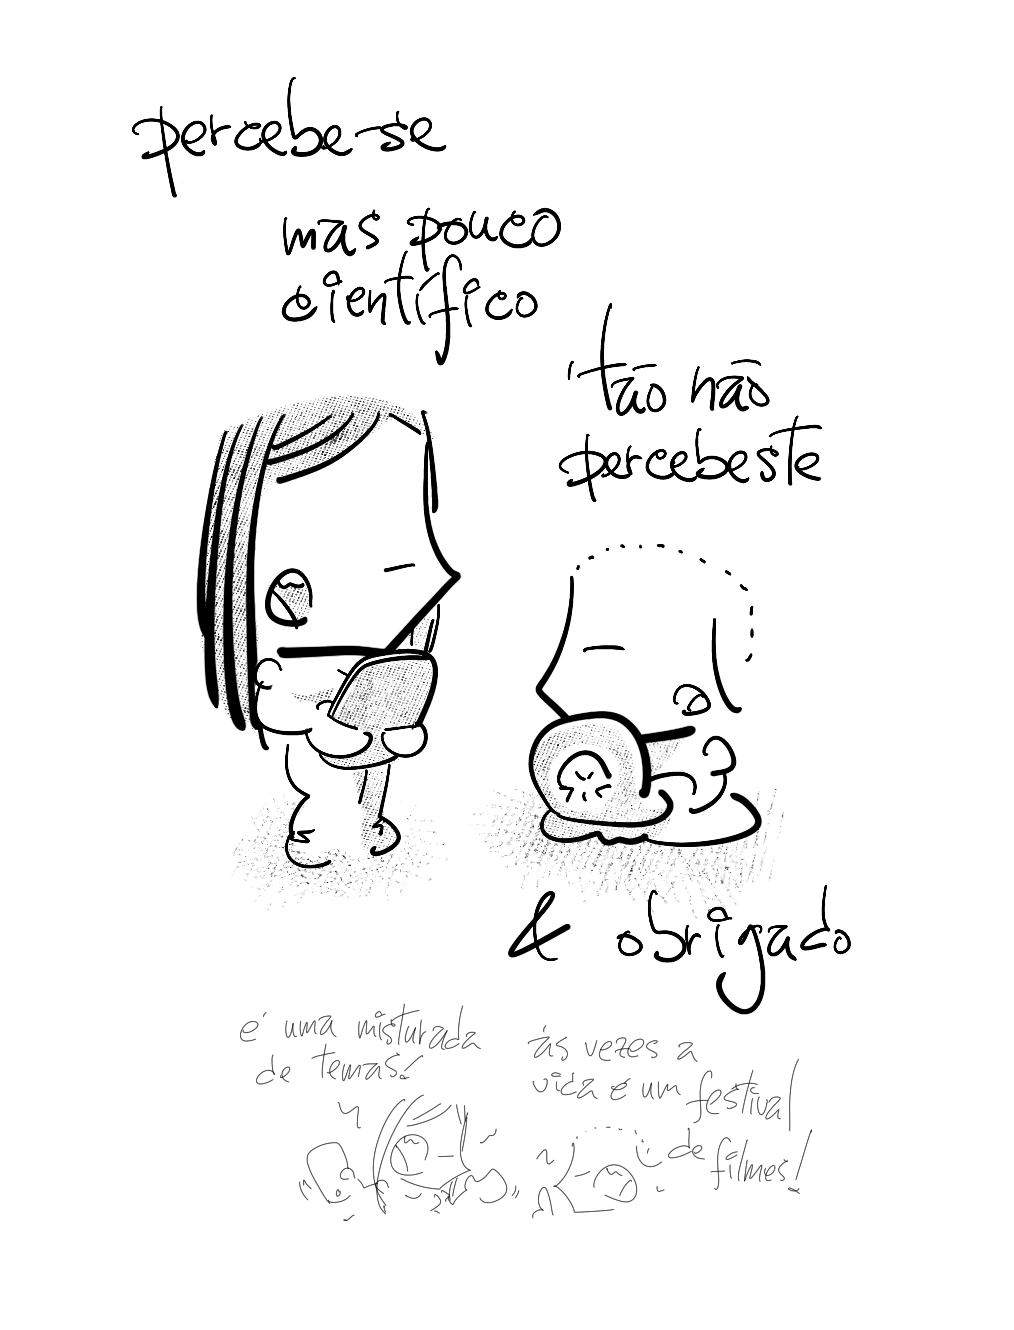 percebe-se
mas pouco
científico
'tão não
percebeste
& obrigado
é uma misturada
de temas!
às vezes a
vida é um festival
de filmes!